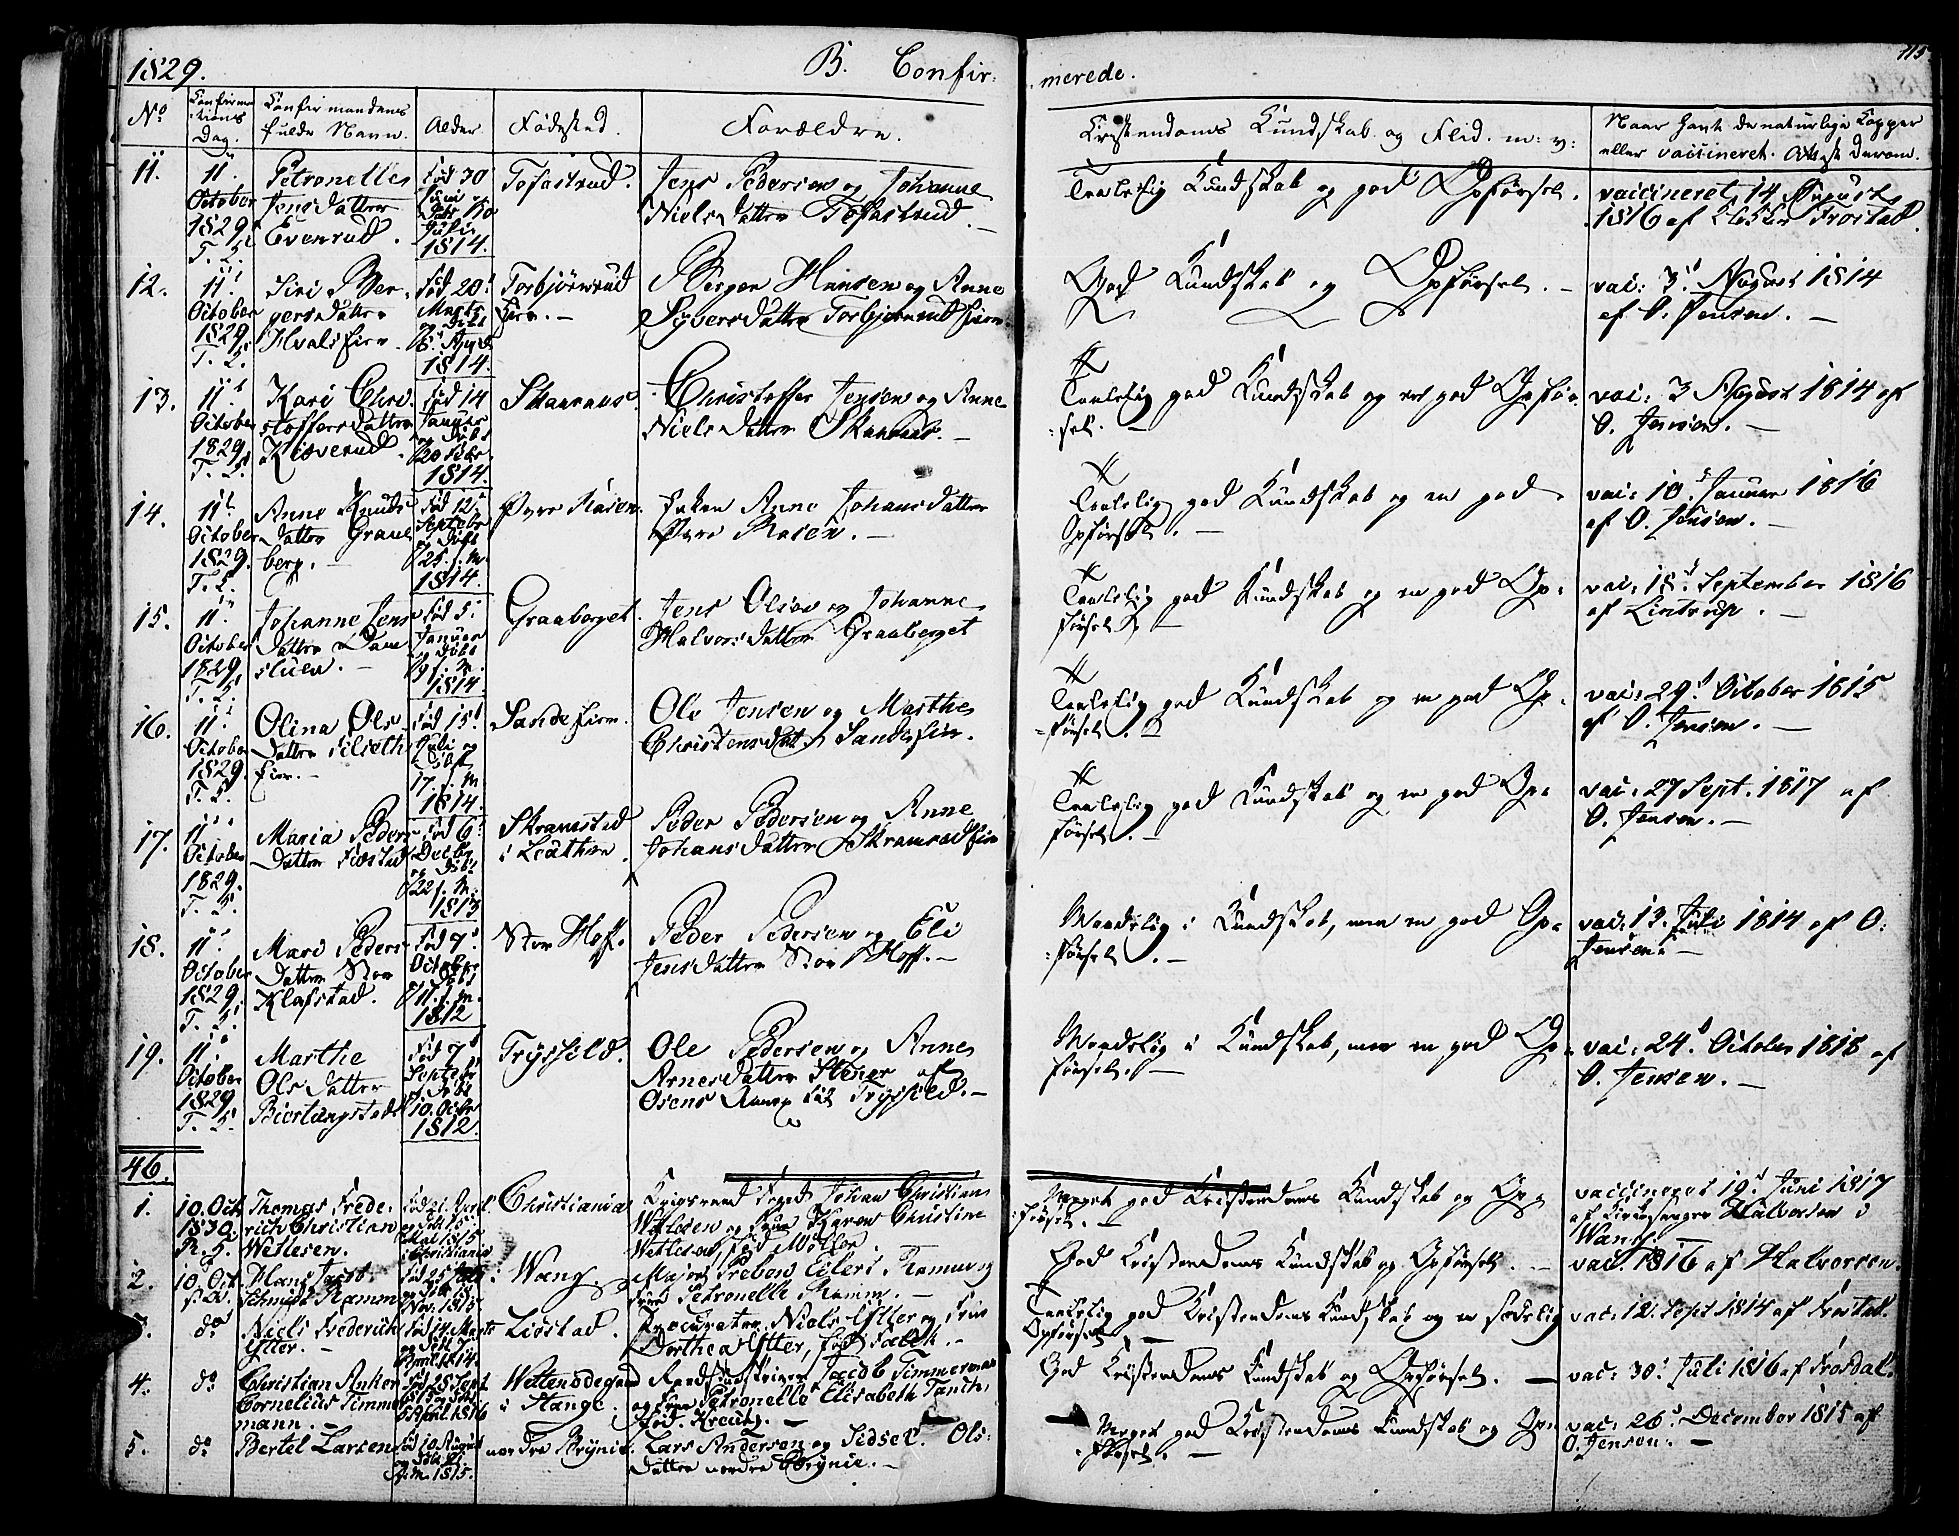 1829. B. Confir-
merede. 115
No Confirma-
tions
Dag. Confirmandens
fulde Navn. Alder Fødested. Forældre.
Christendoms Kundskab og Flid. m: v: Naar havte de naturlige Kopper
eller vaccineret. Attest derom.
11. 11.
October
1829.
T. 5. Petronelle
Jensdatter
Evenrud. Fød 30
Juni
Døbt 10
Julii
1814. Tofastrud. Jens Pedersen og Johanne
Nielsdatter Tofastrud.
Taalelig Kundskab og god Opførsel. vaccineret 14 August
1816 af Klokker Frostad.
12. 11.
October
1829.
T. 5. Siri Ber-
gersdatter
Hvalseier. Fød 20
Marts
Døbt
1814. Torbjørnsrud
Eier. Berger Hansen og Anne
Syversdatter Torbjørnsrud Eier.
God Kundskab og Opførsel. vac: 3 August 1814
af O. Jensen.
13. 11.
October
1829.
T. 5. Kari Chri-
stoffersdatter
Kiøverud. Fød 14
Januar
og Døbt
20 Febr.
1814. Skaaraas. Christoffer Jensen og Anne
Nielsdatter Skaaraas.
Taalelig god Kundskab og en god Opfør-
sel. vac: 3 August 1814 af
O. Jensen.
14. 11
October
1829.
T. 5. Anne Knuds
datter Graae
berg. Fød 12
Septebr
og Døbt
25. s. M.
1814. Øvre Rasen. Enken Anne Johansdatter
Øvre Rasen.
Taalelig god Kundskab og en god
Opførsel. vac: 10 Januar 1816
af O. Jensen.
15. 11
October
1829.
T. 5. Johanne Jens
datter Dam
stuen. Fød 5
Januar
og Døbt
9 s. M.
1814. Graaberget. Jens Olsen og Johanne
Halvorsdatter Graaberget
Taalelig god Kundskab og en god Op-
førsel. vac: 18 September 1816
af Lintrup.
16. 11
October
1829.
T. 5. Olina Ols
datter Silseth
Eier. Fød 15
Juli og
Døbt
17. s. M.
1814. Sande Eier. Ole Jensen og Marthe
Christensdat. Sande Eier.
Taalelig god Kundskab og en god Op-
førsel. vac: 29 October 1815
af O. Jensen.
17. 11
October
1829.
T. 5. Maria Peders
datter Fiøstad Fød 6
Decbr
og Døbt
22 s. M.
1813 Skramstad
i Leuthen. Peder Pedersen og Anne
Johansdatter Skramstad Eier
Taalelig god Kundskab og en god Op-
førsel. vac: 27 Sept. 1817 af
O. Jensen.
18. 11
October
1829.
T. 5. Mari Peders
datter Stor
Klafstad. Fød 7
October
Døbt
11. s. M.
1812 Stor Hof. Peder Pedersen og Eli
Jensdatter Stor Hoff.
Maadelig i Kundskab, men en god Op-
førsel. vac: 13. Juli 1814 af O.
Jensen.
19. 11
October
1829.
T. 5. Marthe
Olsdatter
Bierlangstad Fød 7
Septebr
og Døbt
10. Octbr
1812. Trysild. Ole Pedersen og Anne
Arnesdatter Stener af
Osens Annex til Trysild.
Maadelig i Kundskab, men en god Op-
førsel. vac: 24. October 1818 af
O. Jensen.
46.
1. 10. Oct.
1830. Thomas Frede-
rich Christian
Wetlesen. Fød 21 April
1815
i Christiania Christiania Krigsraad Foged Johan Christian
Wetlesen og Frue Karen Christine
Wetlesen, fød Møller
Meget god Christendoms Kundskab og Op-
førsel. vaccineret 19 Juni 1817
af Kirkesanger Halvorsen i
Wang.
2. 10. Oct. Hans Jacob
Schmidt Ramm Fød 25
Nov. 1815 Wang. Major Preben Eilert Ramm og
Frue Petronelle Ramm.
God Christendoms Kundskab og Opførsel. vac. 1816 af Halvorsen.
3. do Niels Frederich
Ytter. Fød 14 Marts
April 1814. Liøstad. Procurator Niels Ytter og Frue
Dorthea Ytter, fød Falck.
Taalelig god Christendoms Kundskab og en sædelig
Opførsel. vac: 12. Sept 1814 af Frostad.
4. do Christian Anker
Cornelius Timme
mann. Fød 28 Sept
April 1816 Wettensdegaard
i Stange. Sorenskriver Jacob Timmermann
og Frue Petronelle Elisabeth
fød. Kreutz.
God Christendoms Kundskab og Opførsel. vac: 30. Juli 1816 af Frosdal.
5. do Bertel Larsen Fød 10 August
1815. nordre Brynie. Lars Andersen og Sidsel Ols-
datter nordre Brynie.
Meget god Christendoms Kundskab og Op-
førsel. vac: 26 December 1815 af
O. Jensen.